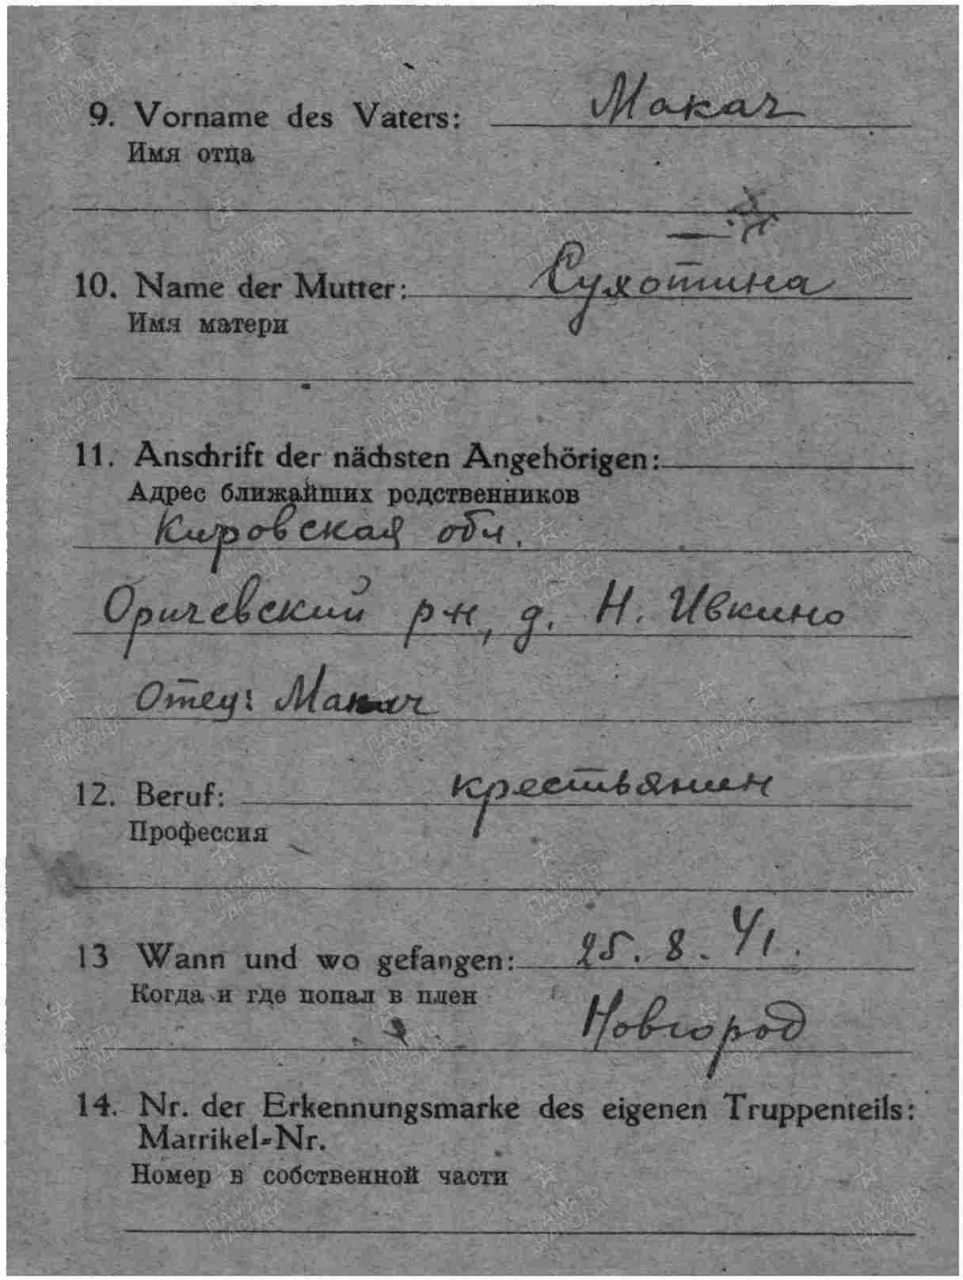 9. Vorname des Vaters: Макач
Имя отца
10. Name der Mutter: Сухотина
Имя матери
11. Anschrift der nächsten Angehörigen:
Адрес ближайших родственников
Кировская обл.
Оричевский р-н, д. Н. Ивкино
Отец: Макач
12. Beruf: крестьянин
Профессия
13 Wann und wo gefangen: 25. 8. 41.
Когда и где попал в плен
Новгород
14. Nr. der Erkennungsmarke des eigenen Truppenteils:
Matrikel-Nr.
Номер в собственной части
ПАМЯТЬ НАРОДА